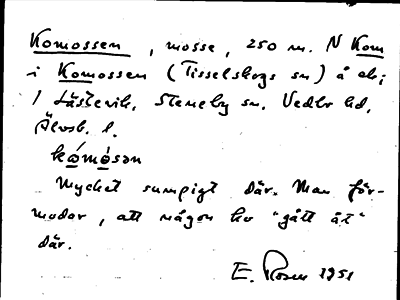 Komossen, mosse, 250 m. N Kom
i Komossen (Tisselskogs sn) å ek;
1 Låstervik, Steneby sn. Vedbo hd,
Älvsb. l.
kómòsən
Mycket sumpigt där. Man för-
modar, att någon ko "gått åt"
där.
E. Rosen 1951